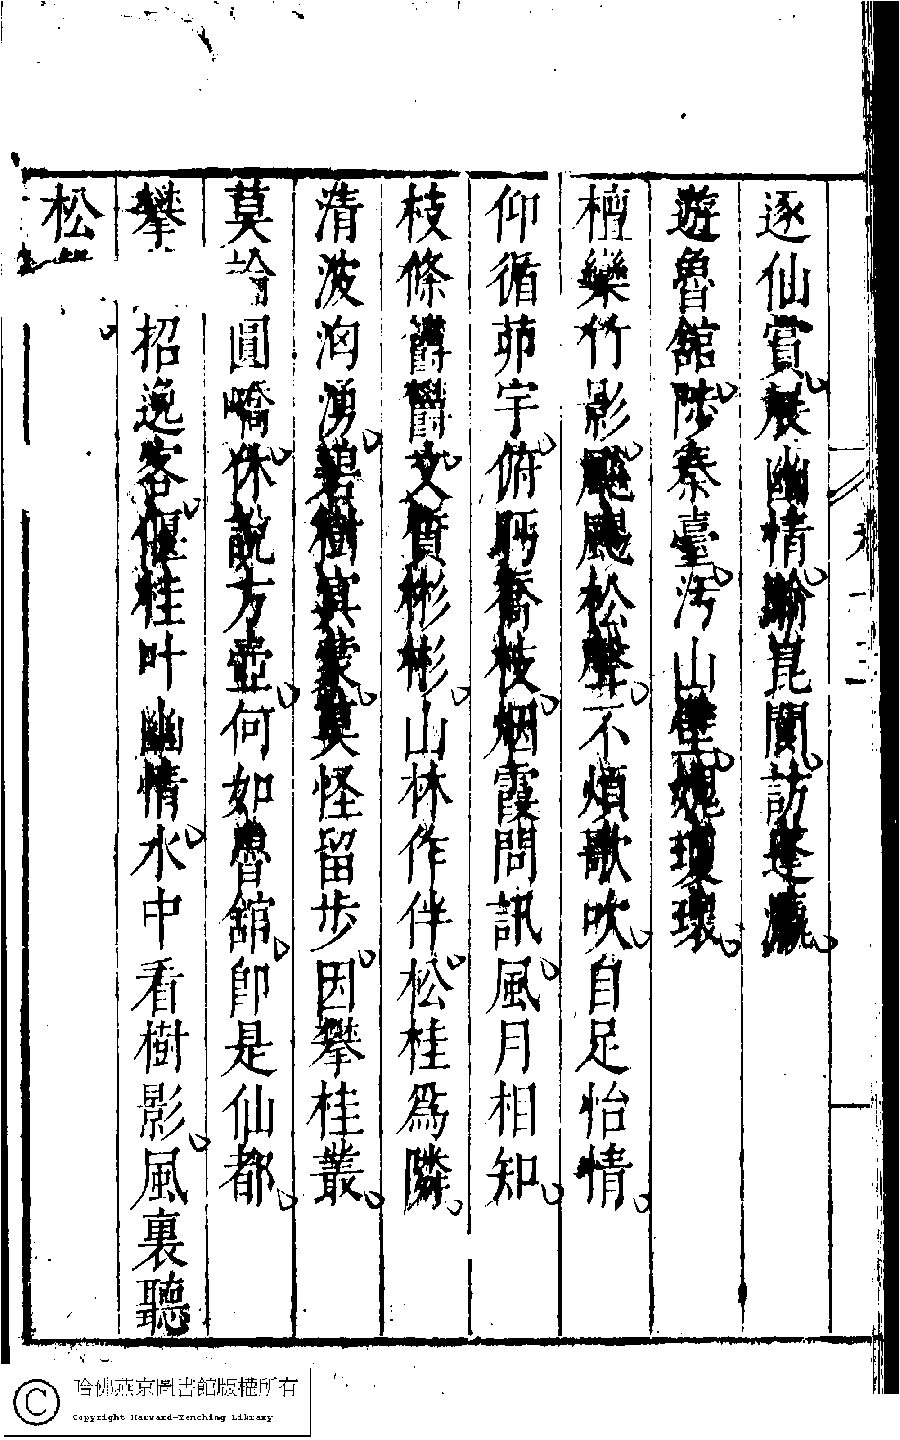 逐仙賞展幽情踰崑閬訪蓬瀛
遊魯舘陟秦臺汚山壁愧瓊瓌
檀欒竹影飈松聲不煩歌吹自足怡情
仰循茆宇俯眄喬枝烟霞問訊風月相知
枝條鬱鬱文質彬彬山林作伴松桂爲隣
清波洶湧碧樹冥蒙莫怪留步因攀桂叢
莫論圓嶠休說方壺何如魯舘卽是仙都
攀招逸客偃桂叶幽情水中看樹影風裏聽
松
哈佛燕京圖書館版權所有
Copyright Harvard-Yenching Library